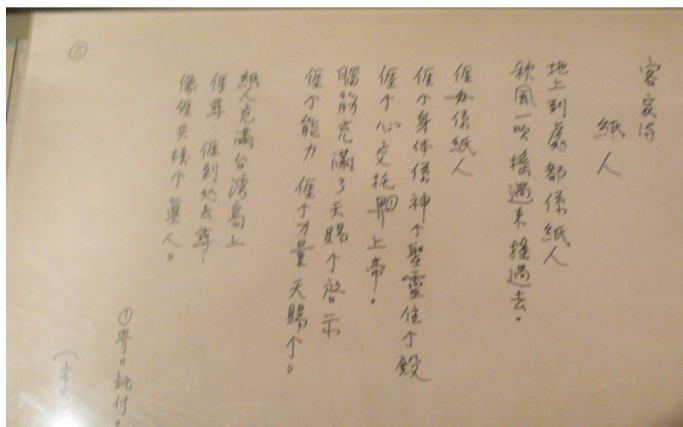 客家詩
紙人
地上到處都係紙人
秋風一吹搖過來搖過去。
𠊎毋係紙人
𠊎个身体係神个聖靈住个殿
𠊎个心交托畀①上帝。
腦筋充滿了天賜个啓示
𠊎个能力𠊎个力量天賜个。
紙人充滿台湾島上
𠊎尋.𠊎到处去尋.
像𠊎共樣个真人。
①畀=託付.
②